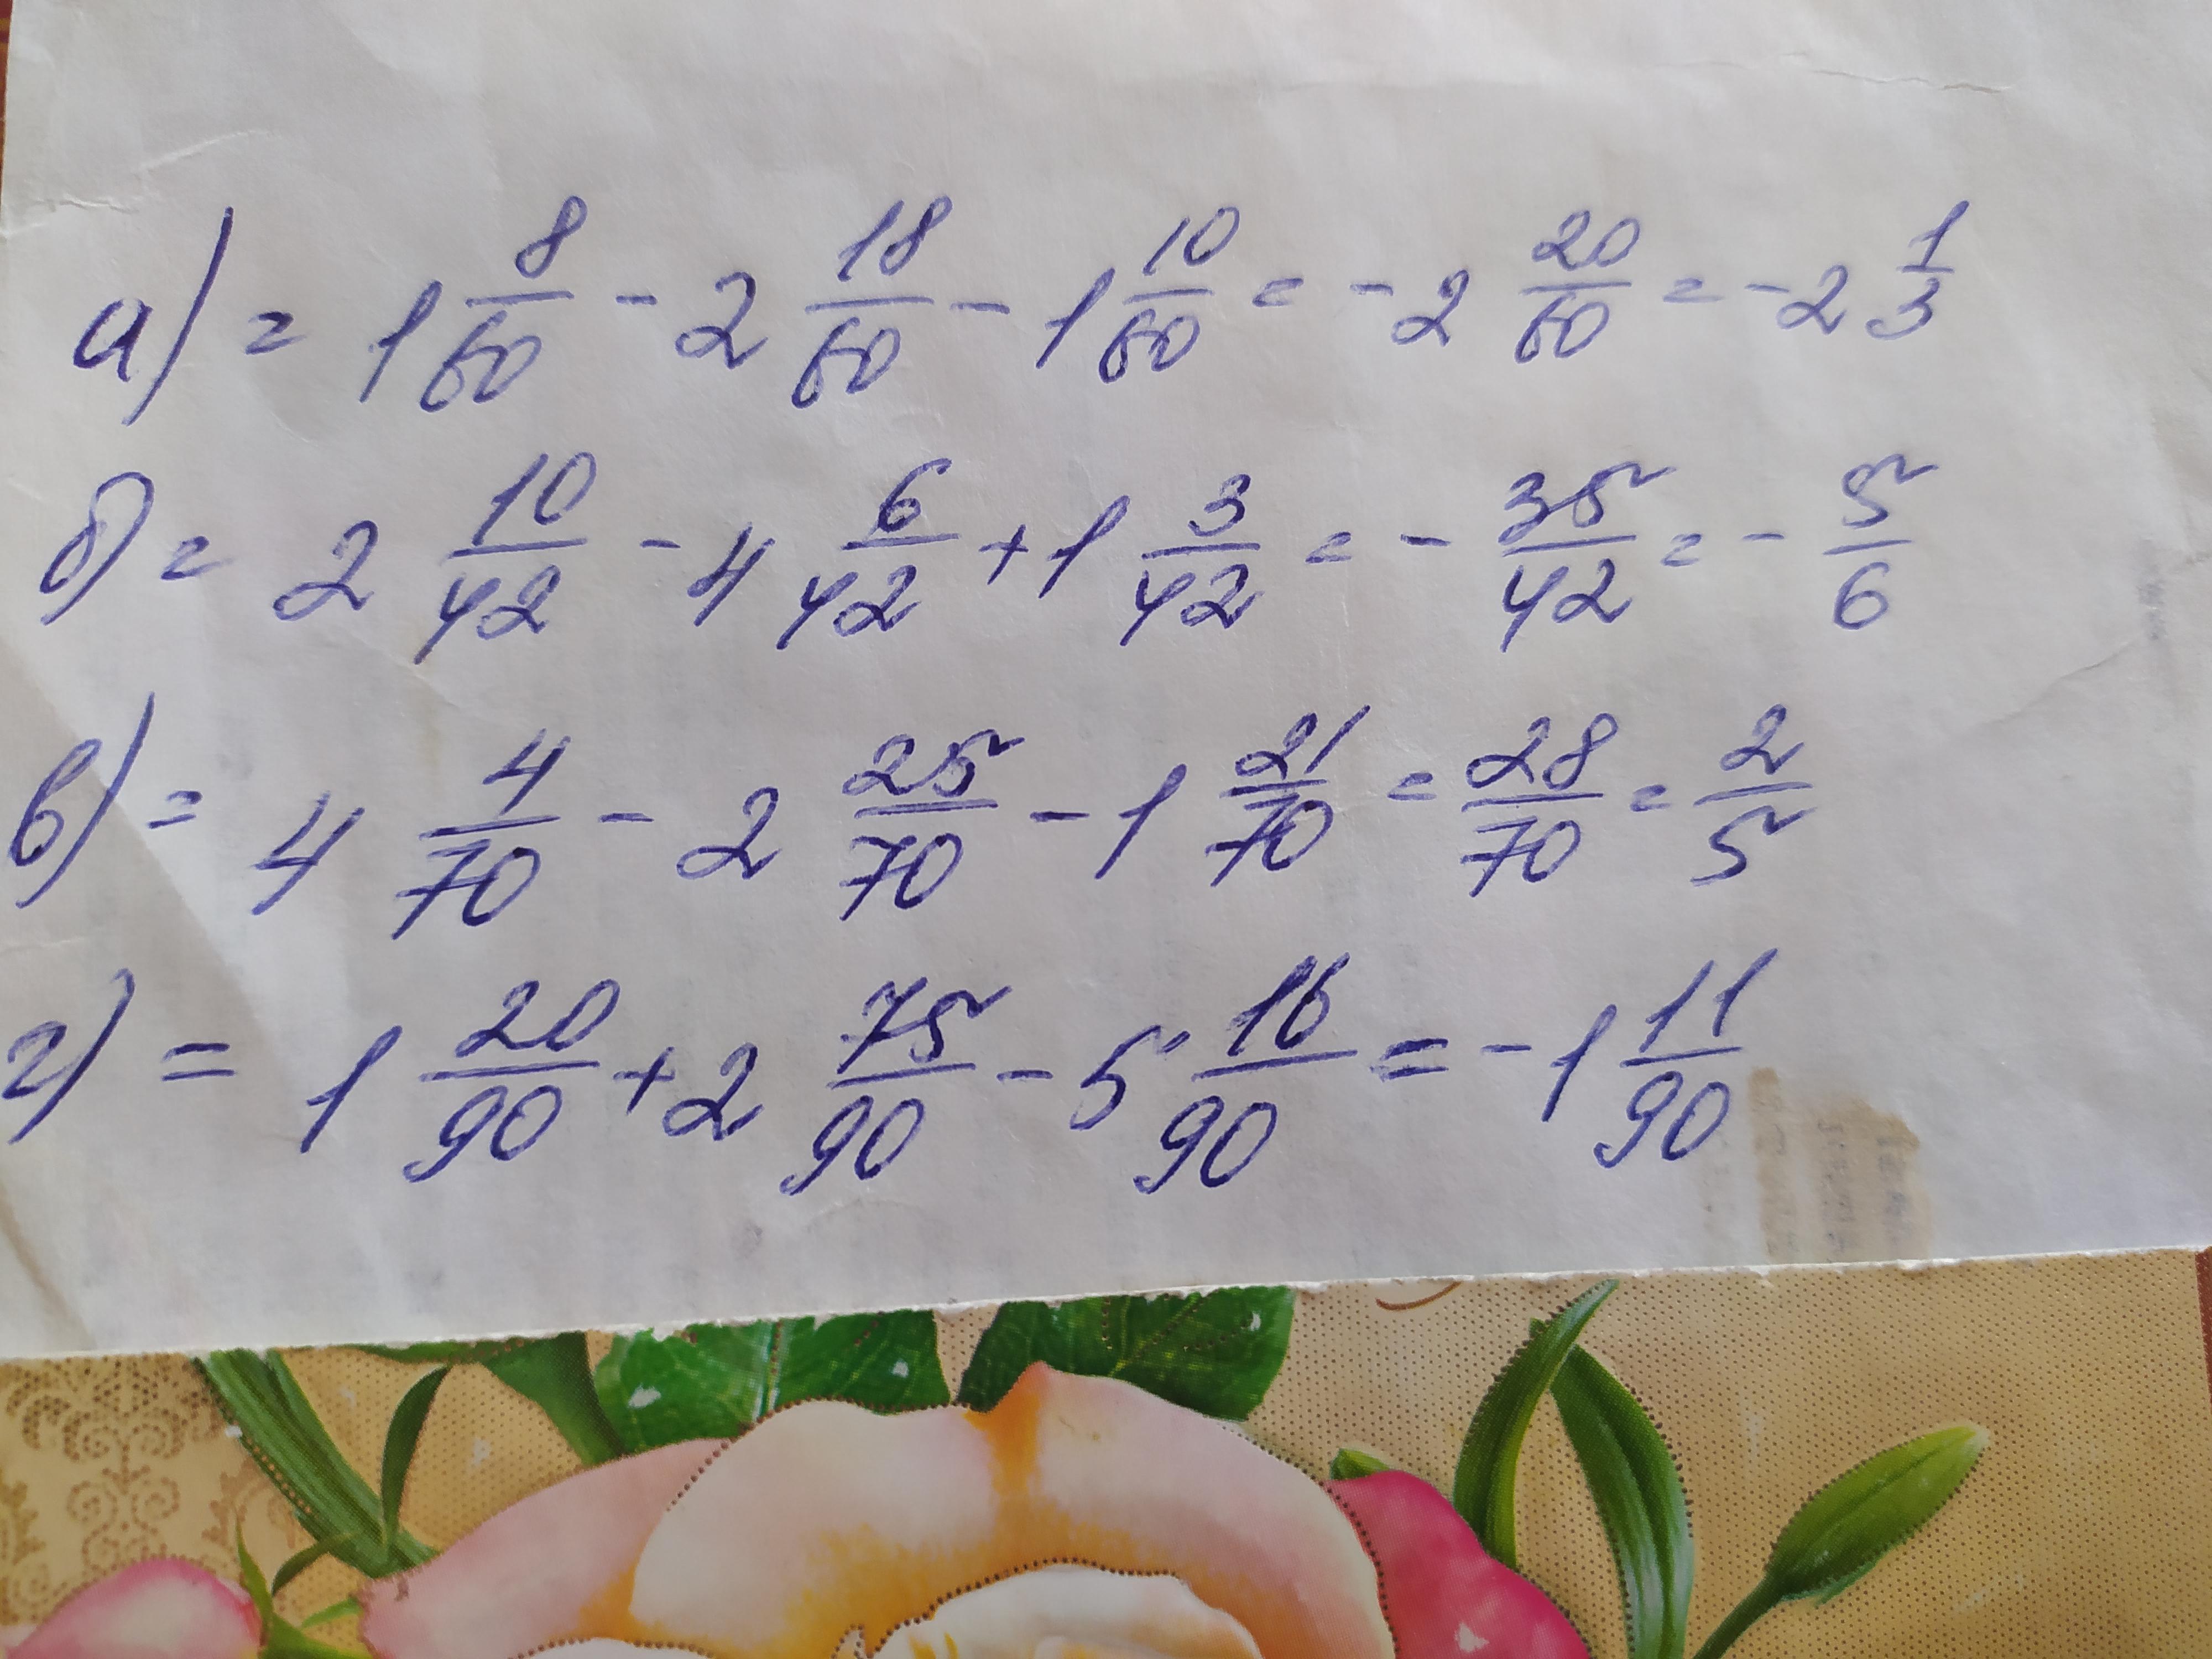 а) = 1 8/60 - 2 18/60 - 1 10/60 = -2 20/60 = -2 1/3
б) = 2 10/42 - 4 6/42 + 1 3/42 = - 35/42 = - 5/6
в) = 4 4/70 - 2 25/70 - 1 21/70 = 28/70 = 2/5
г) = 1 20/90 + 2 75/90 - 5 16/90 = -1 11/90